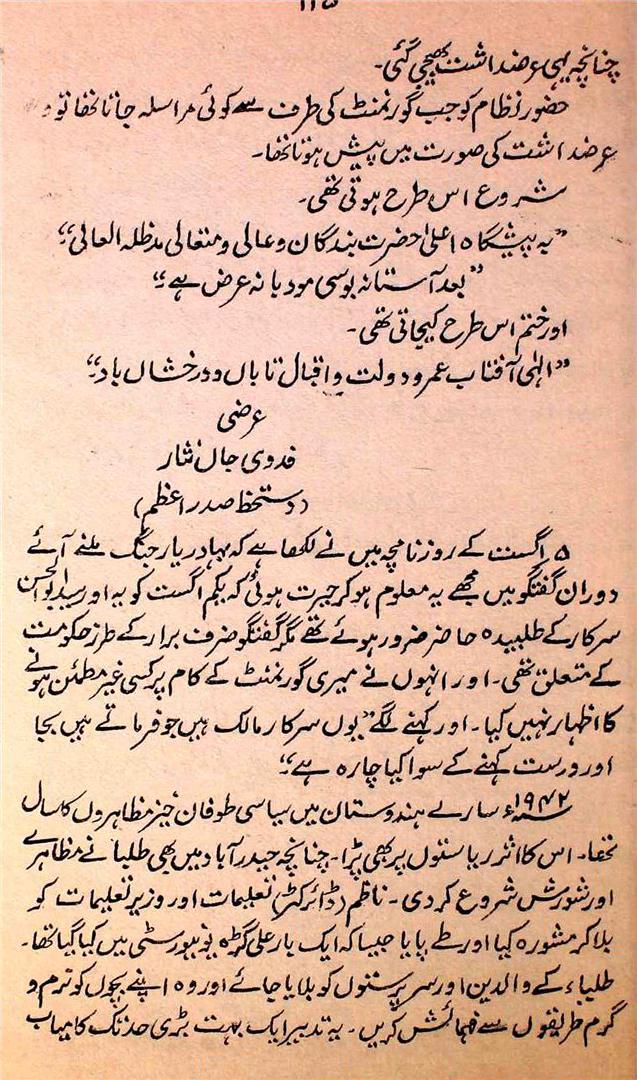 ۱۱۵
چنانچہ یہی عرضداشت بھیجی گئی۔
حضور نظام کو جب گورنمنٹ کی طرف سے کوئی مراسلہ جاتا تھا تو وہ
عرضداشت کی صورت میں پیش ہوتا تھا۔
شروع اس طرح ہوتی تھی۔
”بہ پیشگاہ اعلیٰ حضرت بندگان و عالی و متعالی مدظلہ العالی“
”بعد آستانہ بوسی مودبانہ عرض ہے“
اور ختم اس طرح کیجاتی تھی۔
”الہٰی آفتاب عمر و دولت و اقبال تاباں و درخشاں باد“
عرضی
فدوی جاں نثار
(دستخط صدر اعظم)
۵ اگست کے روزنامچہ میں نے لکھا ہے کہ بہادر یار جنگ ملنے آئے
دوران گفتگو میں مجھے یہ معلوم ہو کر حیرت ہوئی کہ یکم اگست کو یہ اور سید ابوالحسن
سرکار کے طلبیدہ حاضر ضرور ہوئے تھے مگر گفتگو صرف برار کے طرز حکومت
کے متعلق تھی۔ اور انہوں نے میری گورنمنٹ کے کام پر کسی غیر مطمئن ہونے
کا اظہار نہیں کیا۔ اور کہنے لگے ”یوں سرکار مالک ہیں جو فرماتے ہیں بجا
اور درست کہنے کے سوا کیا چارہ ہے“
۱۹۴۲ء سارے ہندوستان میں سیاسی طوفان خیز مظاہروں کا سال
تھا۔ اس کا اثر ریاستوں پر بھی پڑا۔ چنانچہ حیدرآباد میں بھی طلبا نے مظاہرے
اور شورش شروع کر دی۔ ناظم (ڈائرکٹر) تعلیمات اور وزیر تعلیمات کو
بلا کر مشورہ کیا اور طے پایا جیسا کہ ایک بار علی گڑھ یونیورسٹی میں کیا گیا تھا۔
طلباء کے والدین اور سرپرستوں کو بلایا جائے اور وہ اپنے بچوں کو نرم و
گرم طریقوں سے فہمائش کریں۔ یہ تدبیر ایک بہت بڑی حد تک کامیاب